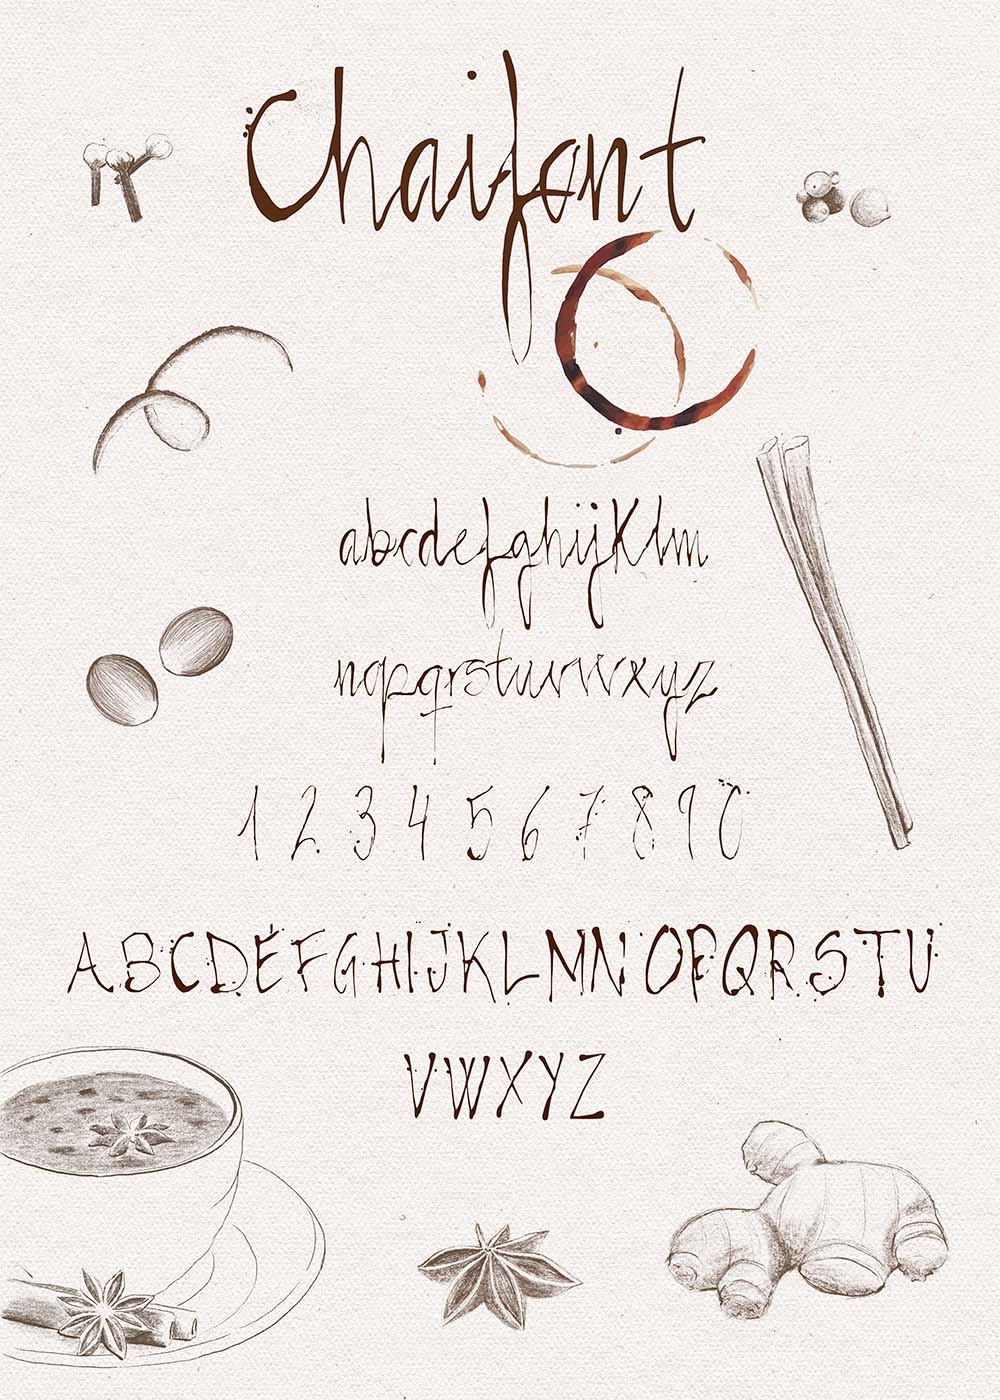 Chaifont
abcdefghijklm
nopqrstuvwxyz
1 2 3 4 5 6 7 8 9 0
ABCDEFGHIJKLMNOPQRSTU
VWXYZ